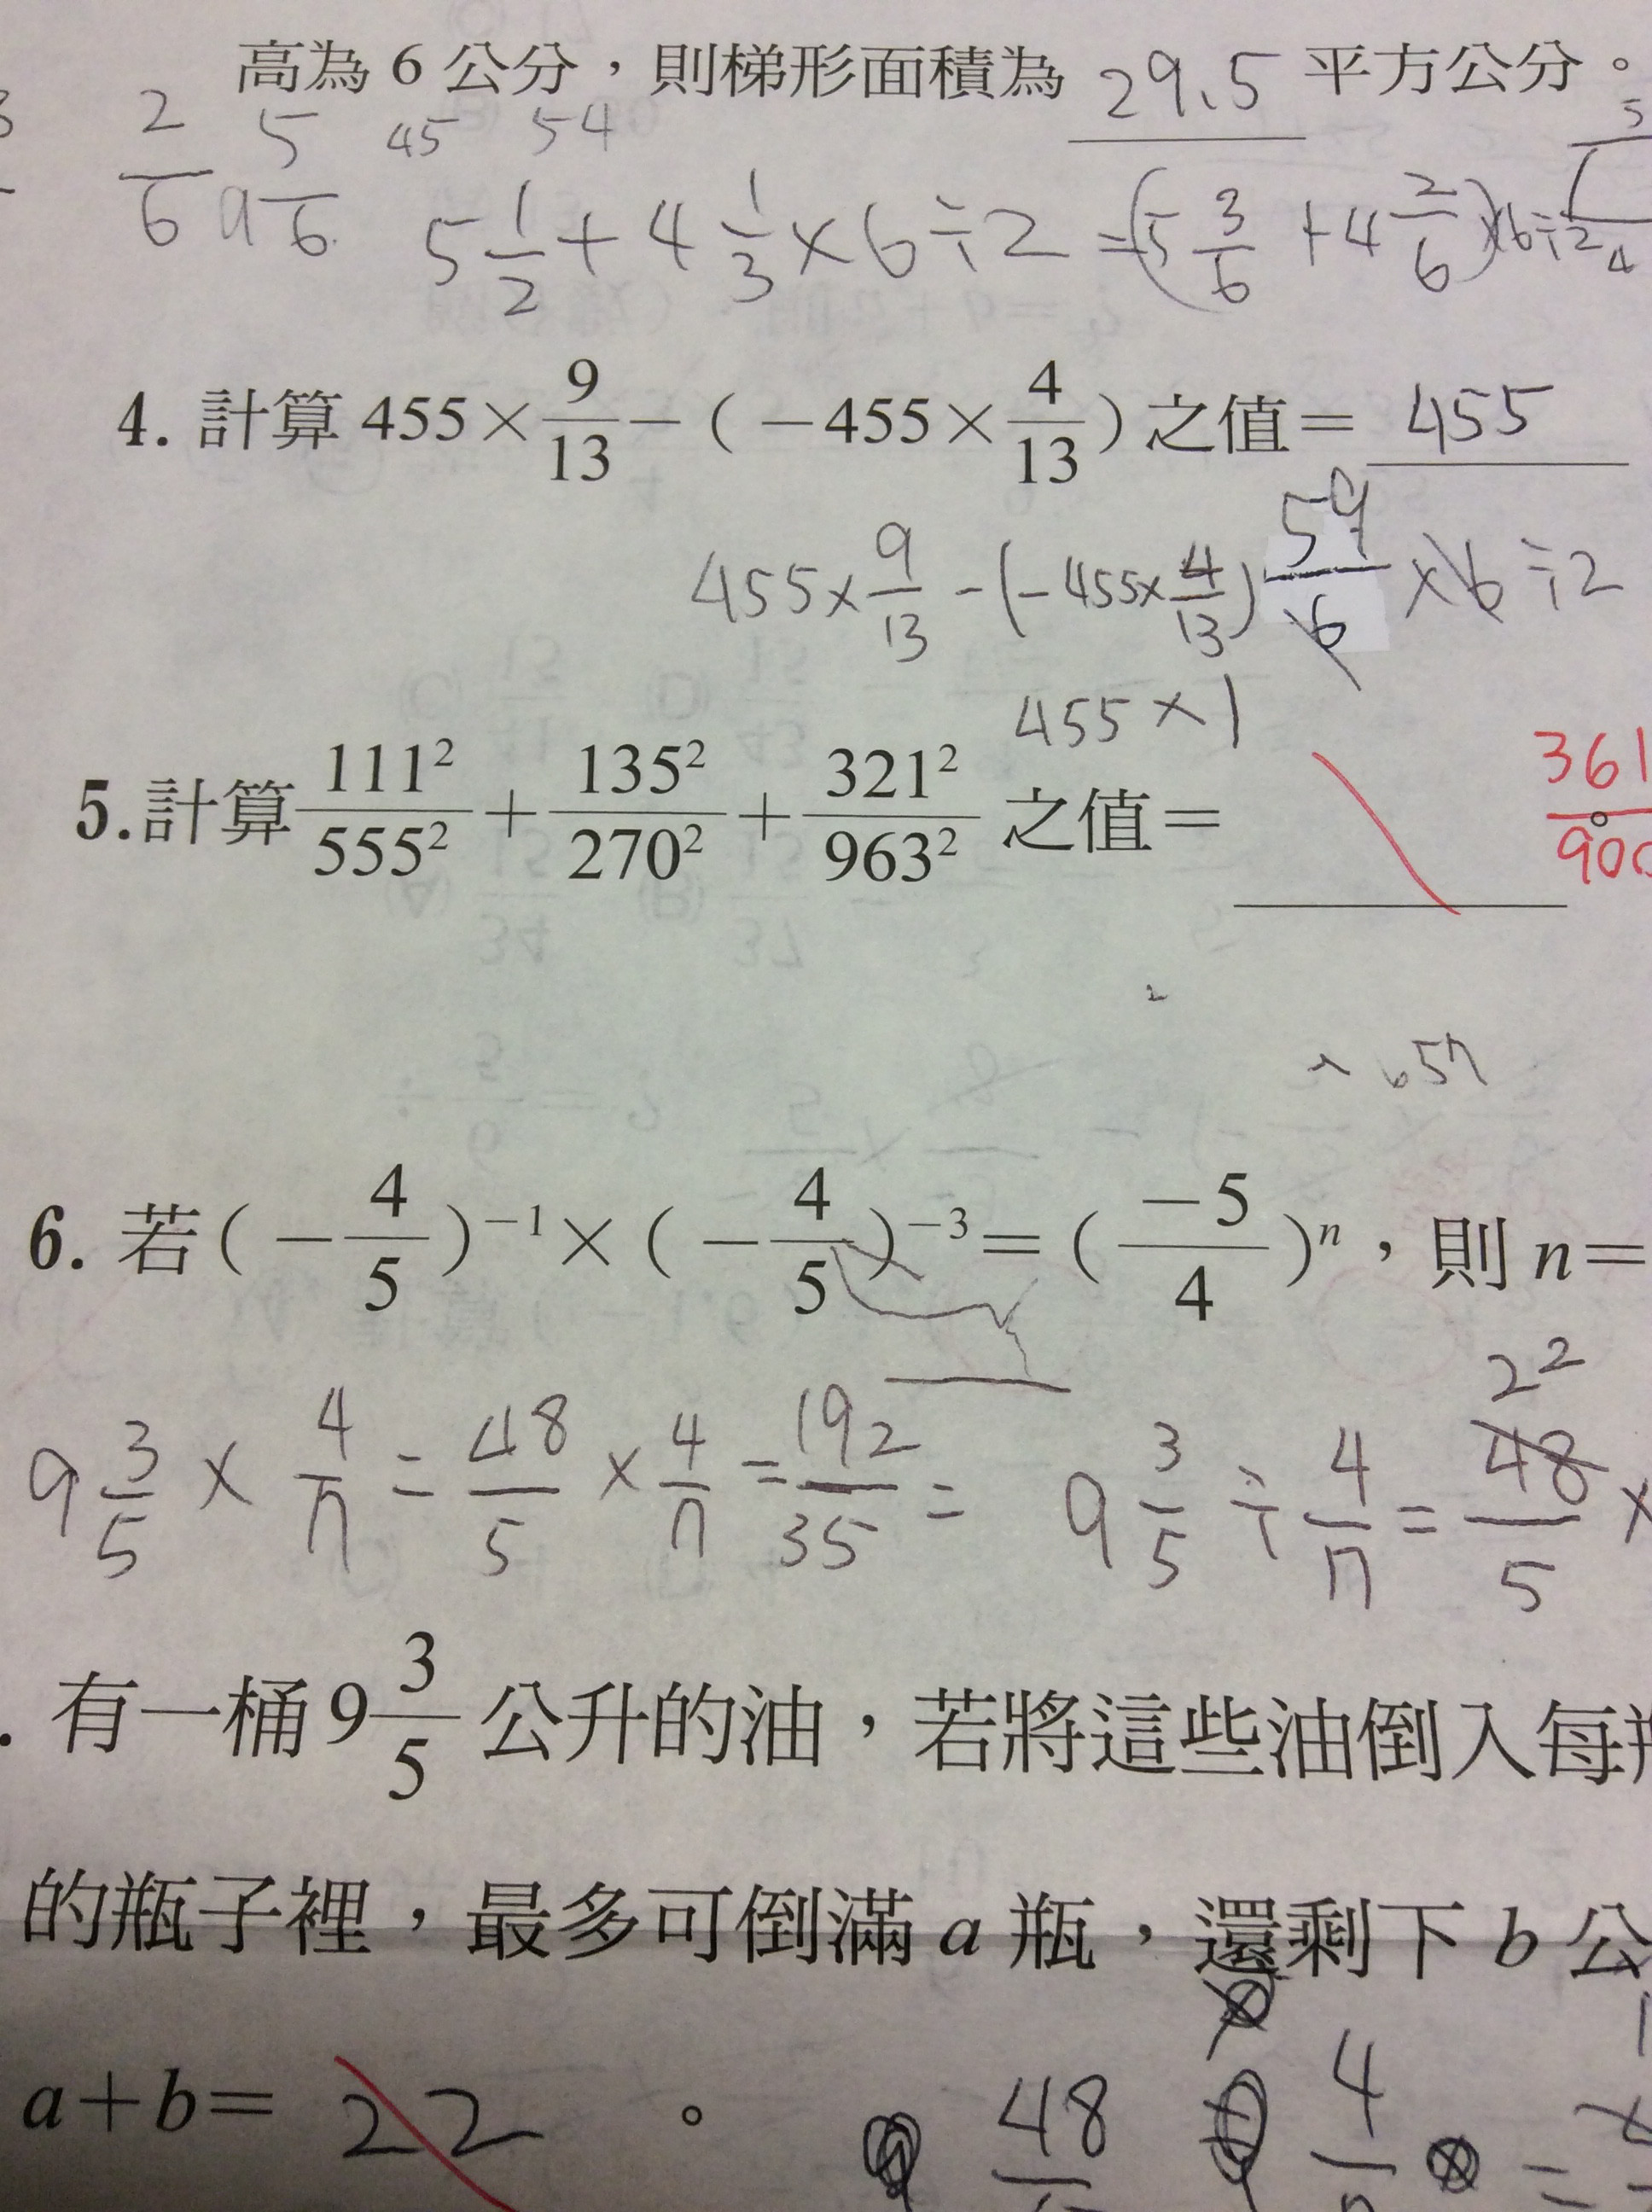 高為 6 公分，則梯形面積為 29.5 平方公分。
2/6 9 5/6 45 54
5 1/2 + 4 1/3 × 6 ÷ 2 = (5 3/6 + 4 2/6) × 6 ÷ 2
4. 計算 455 × 9/13 − ( − 455 × 4/13 ) 之值 = 455
455 × 9/13 − (− 455 × 4/13) 59/6 × 6 ÷ 2
455 × 1
5. 計算 111²/555² + 135²/270² + 321²/963² 之值 = 。 361/900
6. 若 ( − 4/5 )⁻¹ × ( − 4/5 )⁻³ = ( −5/4 )ⁿ，則 n =
9 3/5 × 4/7 = 48/5 × 4/7 = 192/35 = 9 3/5 ÷ 4/7 = 48/5 ×
2²
有一桶 9 3/5 公升的油，若將這些油倒入每
的瓶子裡，最多可倒滿 a 瓶，還剩下 b 公
a + b = 22 。 48 4